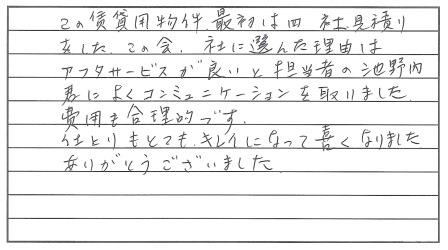 この賃貸用物件、最初は四社見積り
をした。この会社に選んた理由は
アフタサービスが良いと担当者の池野内
君によくコンミュニケーションを取りました。
費用も合理的っです。
仕上りもとても、キレイになって喜くなりました
ありがとうございました。